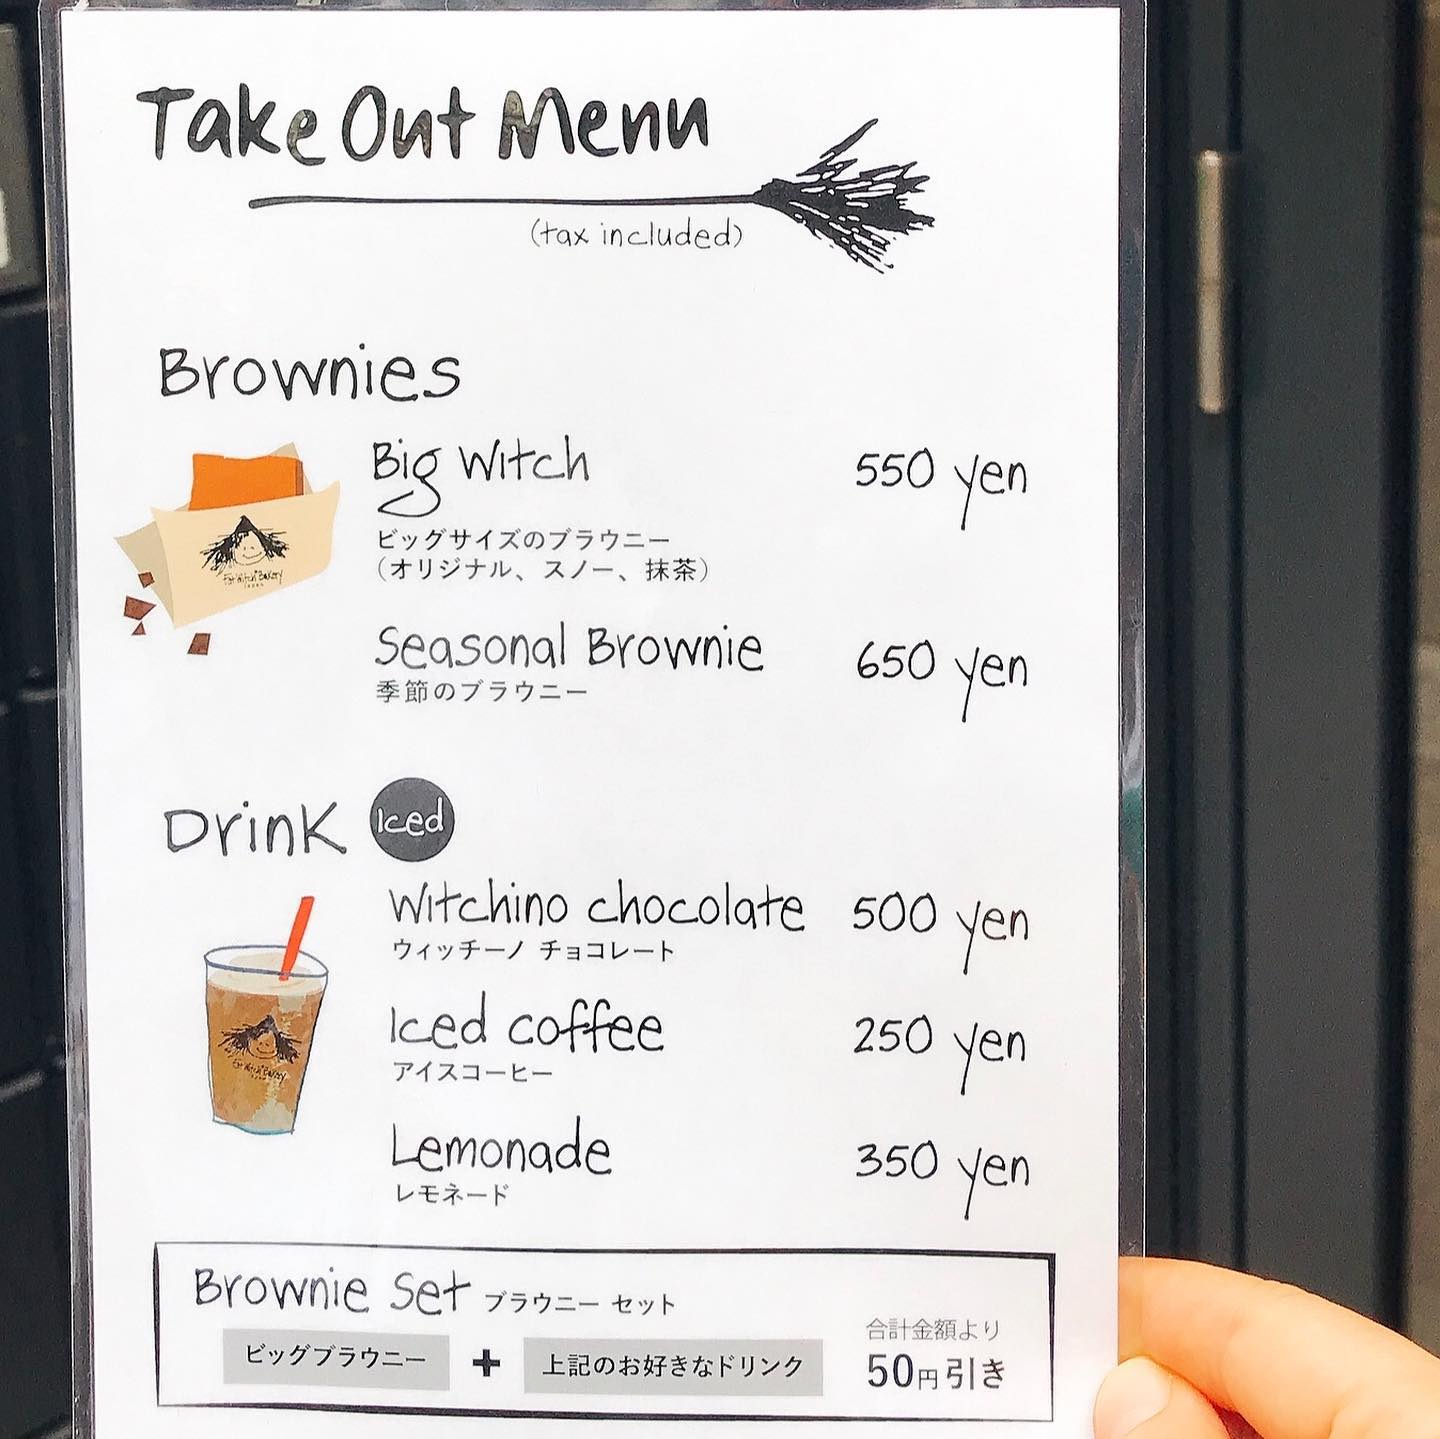 Take Out Menu
(tax included)
Brownies
Big Witch 550 yen
ビッグサイズのブラウニー
(オリジナル、スノー、抹茶)
Fat Witch Bakery
JAPAN
Seasonal Brownie 650 yen
季節のブラウニー
Drink Iced
Witchino chocolate 500 yen
ウィッチーノ チョコレート
Iced coffee 250 yen
アイスコーヒー
Fat Witch Bakery
JAPAN
Lemonade 350 yen
レモネード
Brownie Set ブラウニー セット
合計金額より
ビッグブラウニー + 上記のお好きなドリンク 50円引き